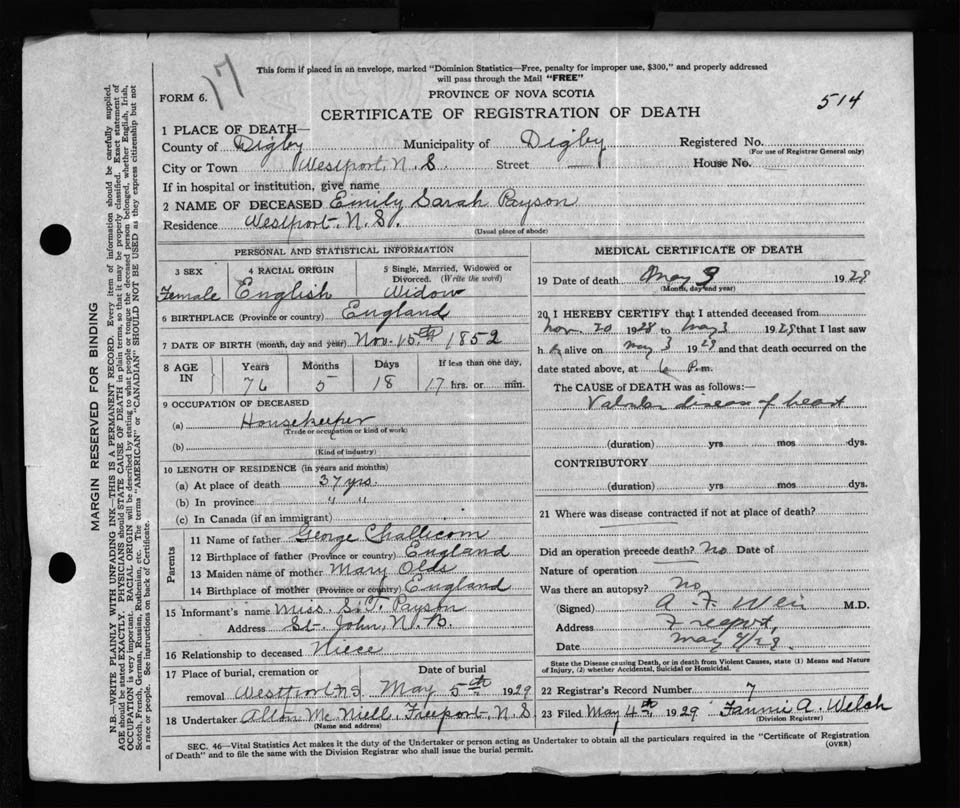 17
This form if placed in an envelope, marked "Dominion Statistics—Free, penalty for improper use, $300," and properly addressed
will pass through the Mail "FREE"
FORM 6.
PROVINCE OF NOVA SCOTIA
514
CERTIFICATE OF REGISTRATION OF DEATH
1 PLACE OF DEATH—
County of Digby Municipality of Digby Registered No.
(For use of Registrar General only)
City or Town Westport, N. S. Street — House No.
If in hospital or institution, give name
2 NAME OF DECEASED Emily Sarah Payson
Residence Westport. N. S.
(Usual place of abode)
PERSONAL AND STATISTICAL INFORMATION
3 SEX 4 RACIAL ORIGIN 5 Single, Married, Widowed or
Divorced. (Write the word)
Female English Widow
6 BIRTHPLACE (Province or country) England
7 DATE OF BIRTH (month, day and year) Nov. 15th 1852
8 AGE IN Years Months Days If less than one day,
76 5 18 17 hrs. or min.
9 OCCUPATION OF DECEASED
(a) Housekeeper
(Trade or occupation or kind of work)
(b)
(Kind of industry)
10 LENGTH OF RESIDENCE (in years and months)
(a) At place of death 37 yrs.
(b) In province " "
(c) In Canada (if an immigrant)
Parents
11 Name of father George Challicom
12 Birthplace of father (Province or country) England
13 Maiden name of mother Mary Olds
14 Birthplace of mother (Province or country) England
15 Informant's name Miss. S. T. Payson
Address St. John, N. B.
16 Relationship to deceased Niece
17 Place of burial, cremation or Date of burial
removal Westport N S. May 5th 1929
18 Undertaker Alton Mc Niell, Freeport, N. S
(Name and address)
MEDICAL CERTIFICATE OF DEATH
19 Date of death May 3 1928
(Month, day and year)
20 I HEREBY CERTIFY that I attended deceased from
Nov. 20 1928 to May 3 1928 that I last saw
h alive on May 3 1929 and that death occurred on the
date stated above, at 6 P.m.
The CAUSE of DEATH was as follows:—
Valvular disease of heart
(duration) yrs mos dys.
CONTRIBUTORY
(duration) yrs mos dys.
21 Where was disease contracted if not at place of death?
Did an operation precede death? No Date of
Nature of operation
Was there an autopsy? No
(Signed) A. F. Weir M.D.
Address Freeport,
Date May 4/28.
State the Disease causing Death, or in death from Violent Causes, state (1) Means and Nature
of Injury, (2) whether Accidental, Suicidal or Homicidal.
22 Registrar's Record Number 7
23 Filed May 4th, 1929 Fannie A. Welch
(Division Registrar)
SEC. 46—Vital Statistics Act makes it the duty of the Undertaker or person acting as Undertaker to obtain all the particulars required in the "Certificate of Registration
of Death" and to file the same with the Division Registrar who shall issue the burial permit.
(OVER)
MARGIN RESERVED FOR BINDING
N.B.—WRITE PLAINLY WITH UNFADING INK—THIS IS A PERMANENT RECORD. Every item of information should be carefully supplied.
AGE should be stated EXACTLY. PHYSICIANS should STATE CAUSE OF DEATH in plain terms, so that it may be properly classified. Exact statement of
OCCUPATION is very important. RACIAL ORIGIN will be described by stating to what people or tongue the deceased person belonged, whether English, Irish,
Scotch, French, German, Russian, Ruthenian, etc. The terms "AMERICAN" or "CANADIAN" SHOULD NOT BE USED as they express citizenship but not
a race or people. See instructions on back of Certificate.